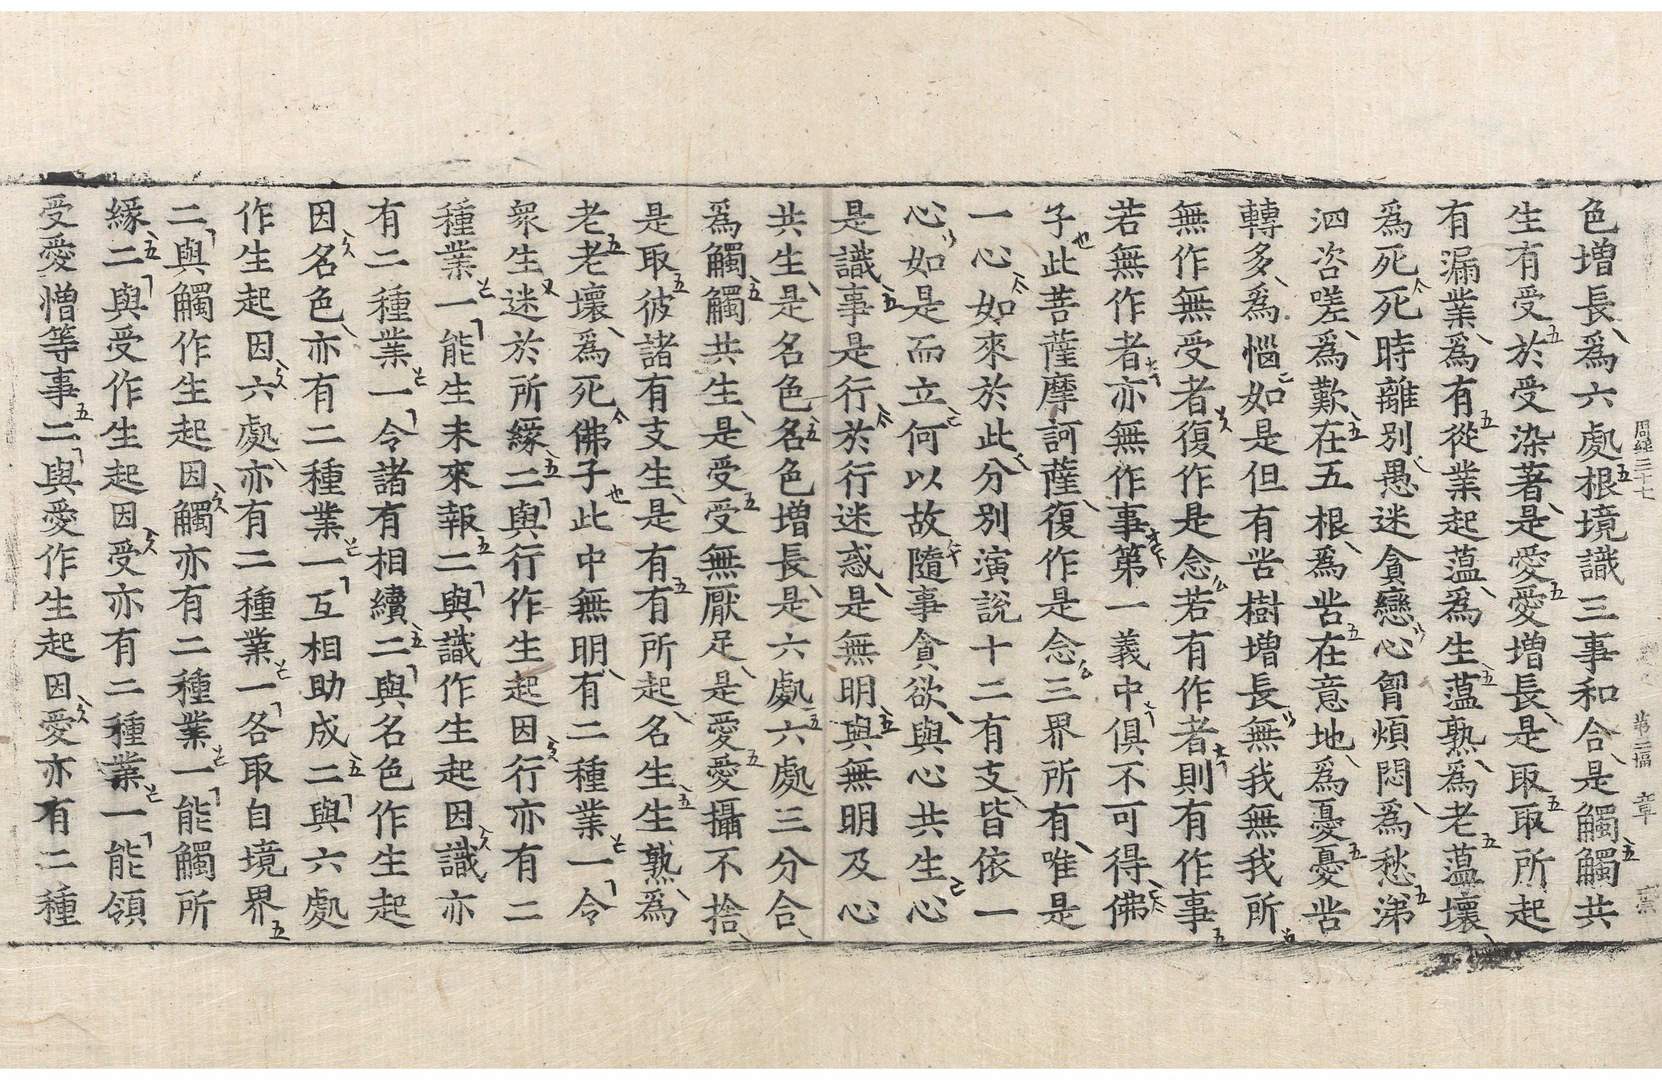 色增長爲六處根境識三事和合是觸觸共
生有受於受染著是愛愛增長是取取所起
有漏業爲有從業起蘊爲生蘊熟爲老蘊壞
爲死死時離別愚迷貪戀心胷煩悶爲愁涕
泗咨嗟爲歎在五根爲苦在意地爲憂憂苦
轉多爲惱如是但有苦樹增長無我無我所
無作無受者復作是念若有作者則有作事
若無作者亦無作事第一義中俱不可得佛
子此菩薩摩訶薩復作是念三界所有唯是
一心如來於此分別演說十二有支皆依一
心如是而立何以故隨事貪欲與心共生心
是識事是行於行迷惑是無明與無明及心
共生是名色名色增長是六處六處三分合
爲觸觸共生是受受無厭足是愛愛攝不捨
是取彼諸有支生是有有所起名生生熟爲
老老壞爲死佛子此中無明有二種業一令
衆生迷於所緣二與行作生起因行亦有二
種業一能生未來報二與識作生起因識亦
有二種業一令諸有相續二與名色作生起
因名色亦有二種業一互相助成二與六處
作生起因六處亦有二種業一各取自境界
二與觸作生起因觸亦有二種業一能觸所
緣二與受作生起因受亦有二種業一能領
受愛憎等事二與愛作生起因愛亦有二種